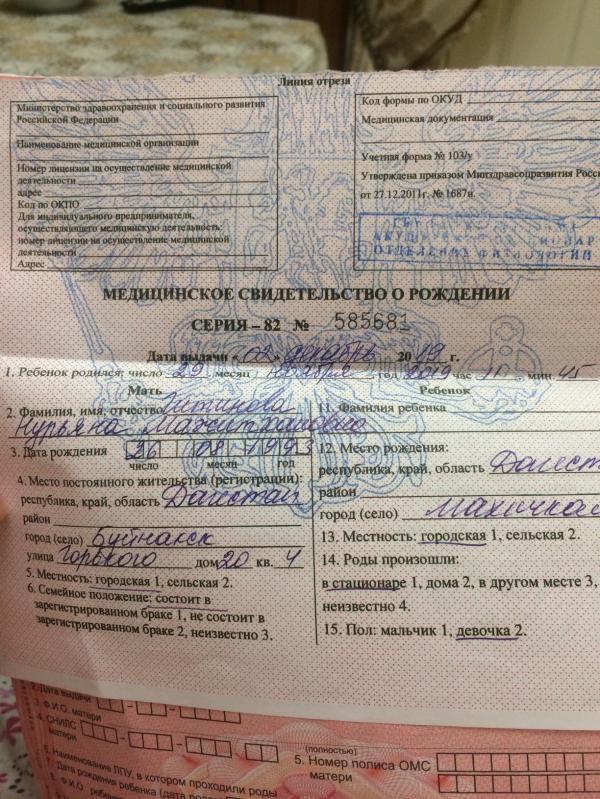 Линия отреза
Министерство здравоохранения и социального развития
Российской Федерации
Наименование медицинской организации
Номер лицензии на осуществление медицинской
деятельности
адрес
Код по ОКПО
Для индивидуального предпринимателя,
осуществляющего медицинскую деятельность:
номер лицензии на осуществление медицинской
деятельности
Адрес
Код формы по ОКУД
Медицинская документация
Учетная форма № 103/у
Утверждена приказом Минздравсоцразвития Росс
от 27.12.2011г. № 1687н.
ОТДЕЛЕНИЕ
МЕДИЦИНСКОЕ СВИДЕТЕЛЬСТВО О РОЖДЕНИИ
СЕРИЯ – 82 № 585681
Дата выдачи « 02 » декабрь 2019 г.
1. Ребенок родился: число 29 месяц ноября год 2019 час 11 мин. 45
Мать
2. Фамилия, имя, отчество
Нурьяна
3. Дата рождения 26 08 1993
число месяц год
4. Место постоянного жительства (регистрации):
республика, край, область Дагестан
район
город (село) Буйнакск
улица Горького дом 20 кв. 4
5. Местность: городская 1, сельская 2.
6. Семейное положение: состоит в
зарегистрированном браке 1, не состоит в
зарегистрированном браке 2, неизвестно 3.
Ребенок
11. Фамилия ребенка
12. Место рождения:
республика, край, область Дагест
район
город (село) Махачкал
13. Местность: городская 1, сельская 2.
14. Роды произошли:
в стационаре 1, дома 2, в другом месте 3,
неизвестно 4.
15. Пол: мальчик 1, девочка 2.
2. Дата выдачи
3. Ф.И.О. матери
4. СНИЛС
матери
(полностью)
5. Номер полиса ОМС
матери
6. Наименование ЛПУ, в котором проходили роды
7. Дата рождения ребенка (дата родов
8. Ф.И.О. ребен